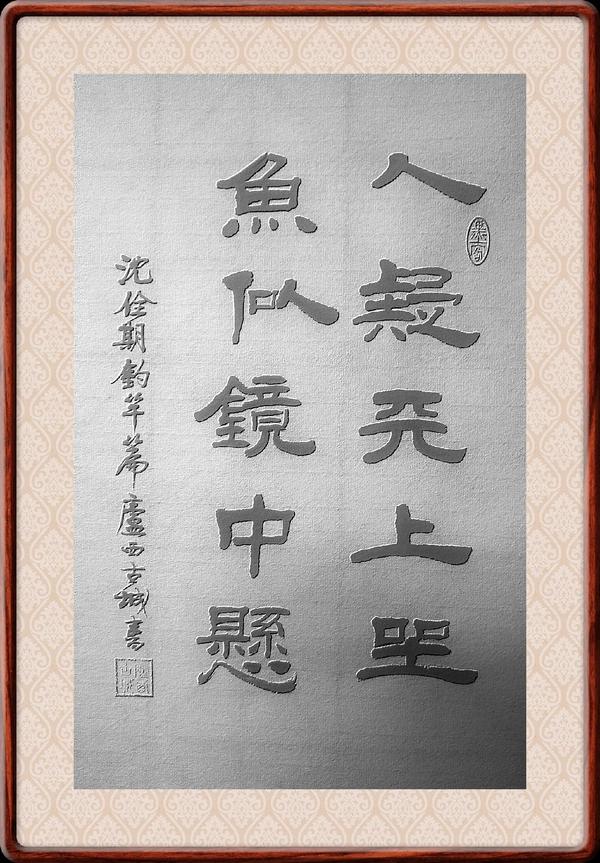 人疑天上坐
魚似鏡中懸
沈佺期釣竿篇廬西古城書